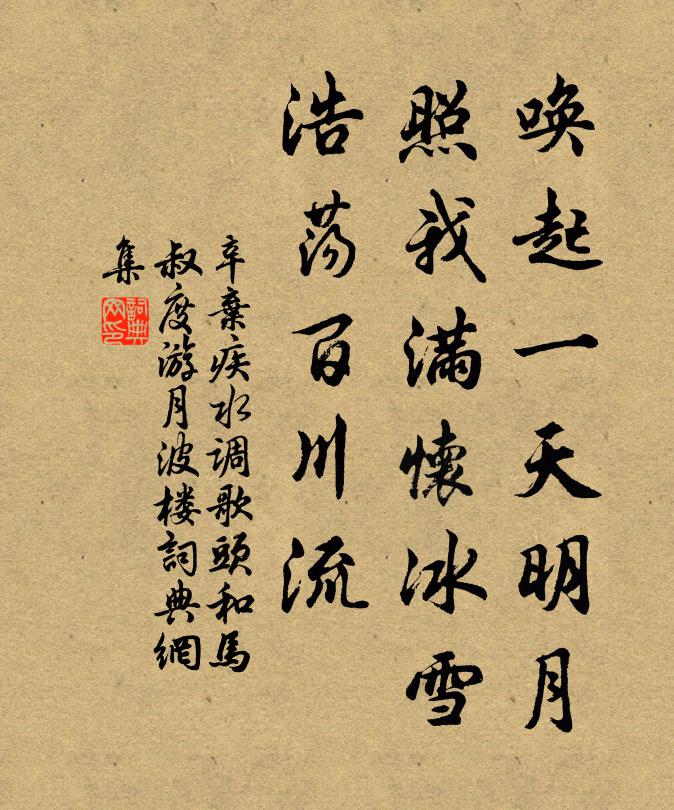 唤起一天明月
照我满懷冰雪
浩荡百川流
辛棄疾水调歌頭和馬
叔度游月波楼詞典網
集
詞典
网印